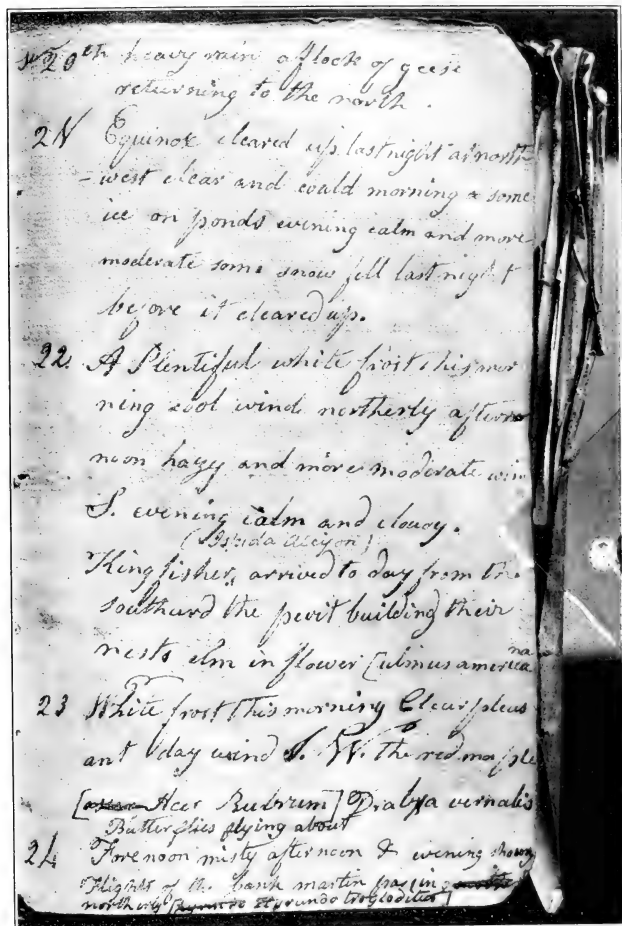 20th heavy rain a flock of geese
returning to the north.
21 Equinox cleared up last night at north
-west clear and could morning & some
ice on ponds evening calm and more
moderate some snow fell last night
before it cleared up.
22. A Plentiful white frost this mor
ning cool wind northerly after
noon hazy and more moderate win
S. evening calm and cloudy.
(Ispida alcyon)
King fisher, arrived to day from the
southurd the pevit building their
nests elm in flower [ulmus america
na
23 White frost this morning Clear pleas
ant day wind S. W. the red maple
[Acer Rubrum] Draba vernalis
Butterflies flying about
24 Forenoon misty afternoon & evening showry
Flights of the bank martin passing
northerly Hyrundo troglodites]